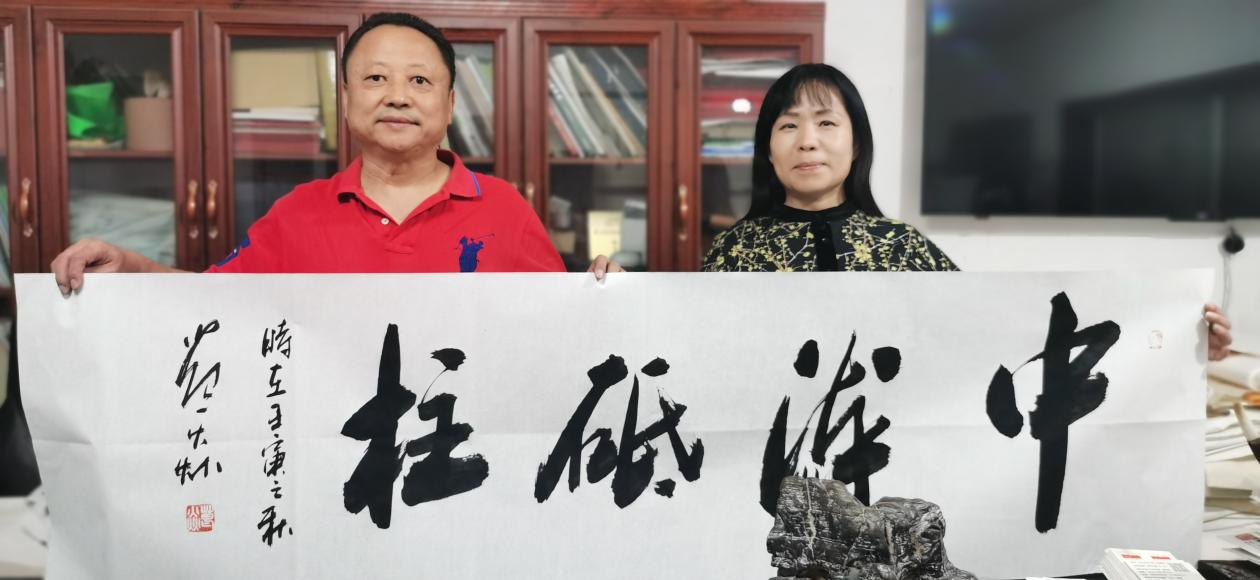 中流砥柱
時在壬寅之秋